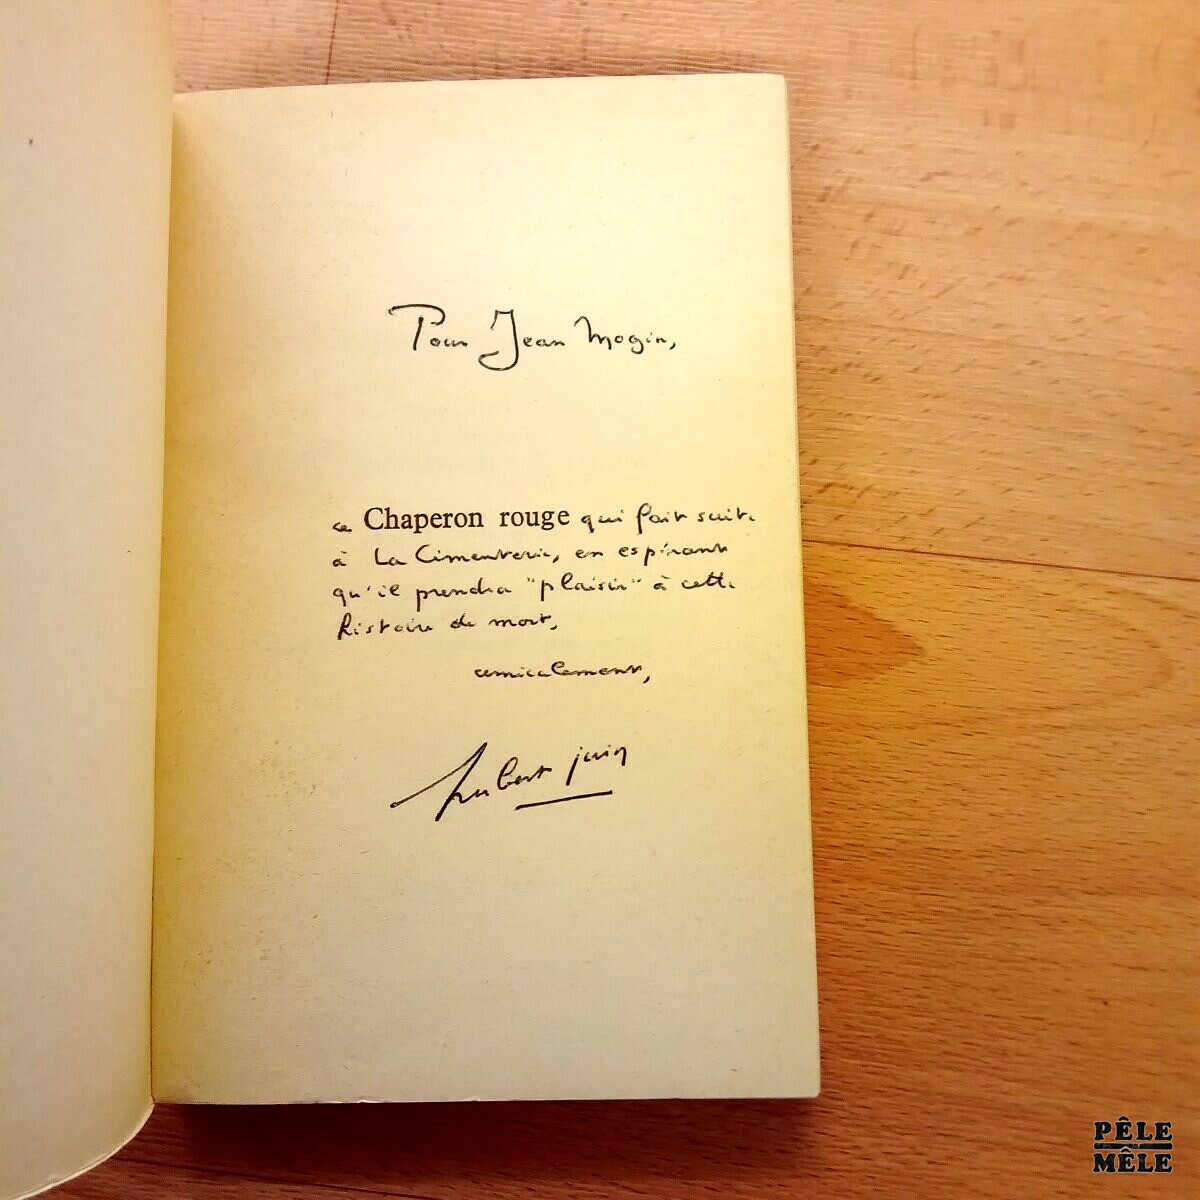 Pour Jean Mogin,
ce Chaperon rouge qui fait suite
à La Cimenterie, en espérant
qu'il prendra "plaisir" à cette
histoire de mort,
amicalement,
hubert juin
PÊLE
MÊLE